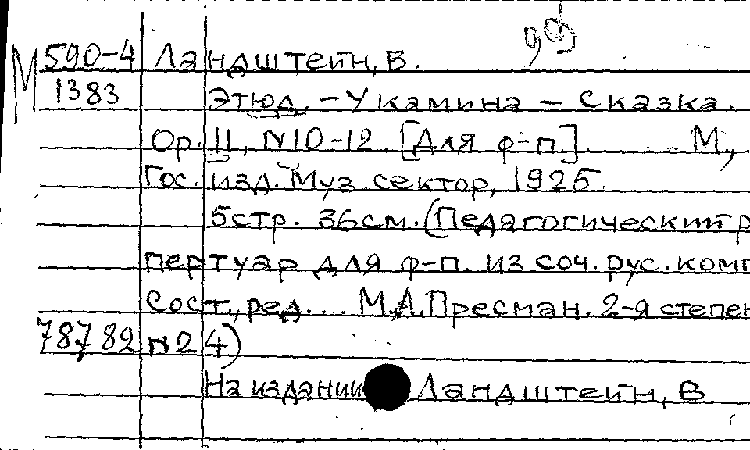 М 590-4 Ландштейн, В.
1383 Этюд. – У камина – Сказка.
Ор. 11, N10-12. [Для ф-п]. М,
Гос. изд. Муз. сектор, 1925.
5 стр. 36 см. (Педагогический р
пертуар для ф-п. из соч. рус. комп
Сост., ред... М.А. Пресман. 2-я степен
78782 N24)
На издании Ландштейн, В